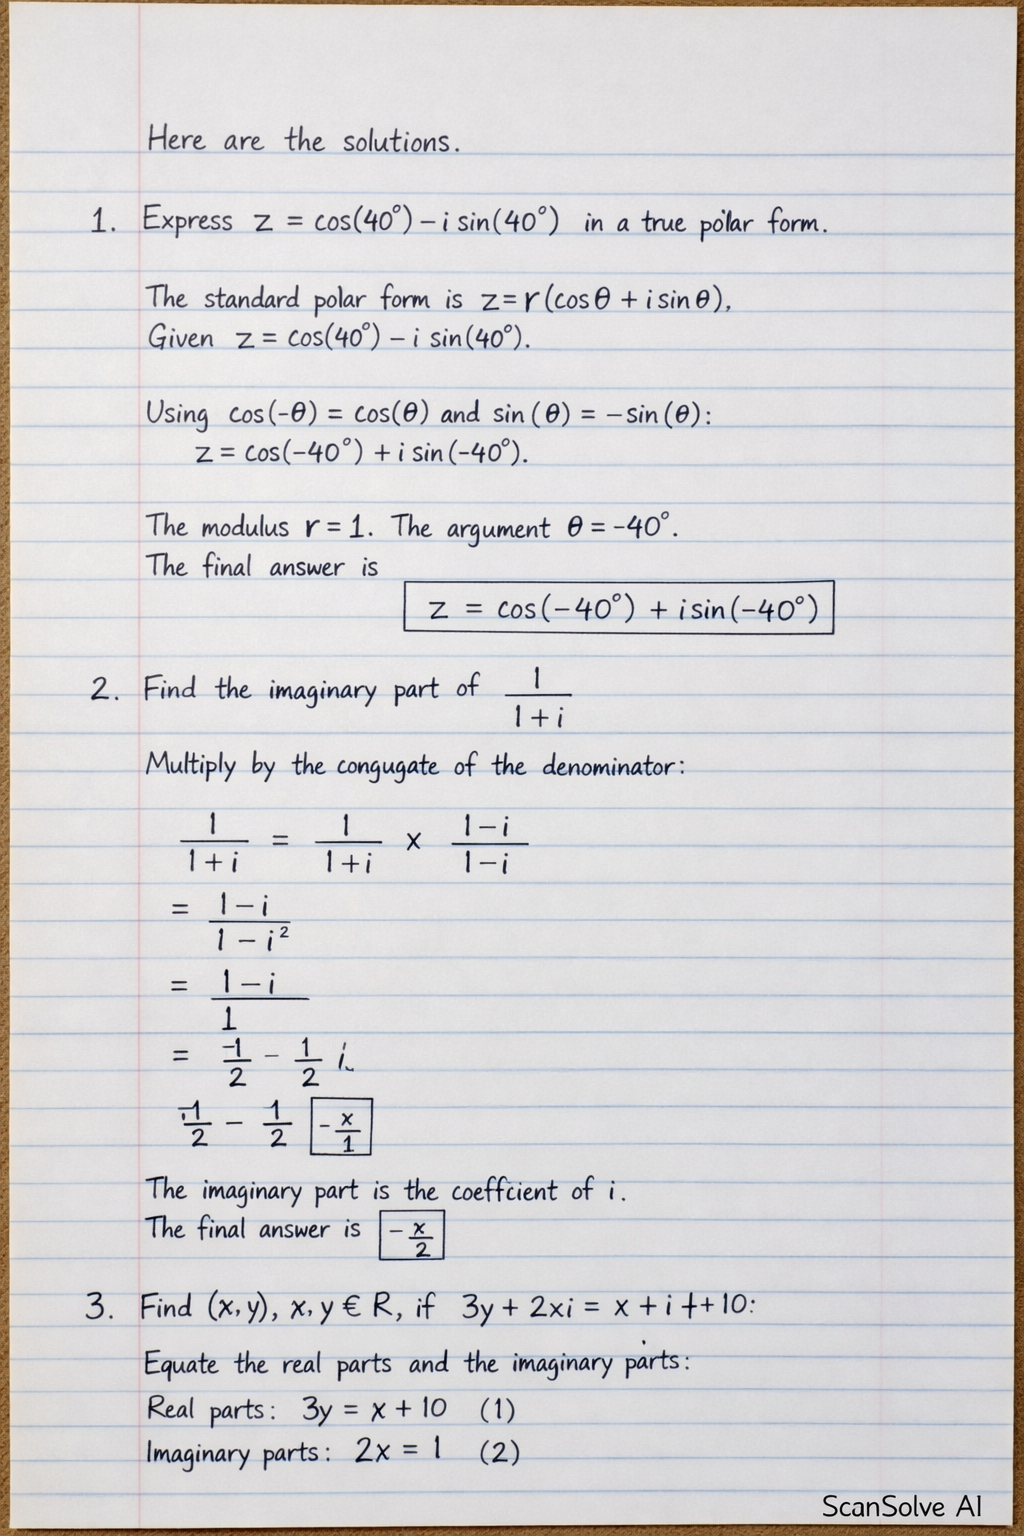 Here are the solutions.
1. Express z = cos(40°) – i sin(40°) in a true polar form.
The standard polar form is z=r(cosθ + isinθ),
Given z = cos(40°) – i sin(40°).
Using cos(-θ) = cos(θ) and sin(θ) = –sin(θ):
z = cos(-40°) + i sin(-40°).
The modulus r = 1. The argument θ = -40°.
The final answer is
z = cos(-40°) + isin(-40°)
2. Find the imaginary part of 1/(1+i)
Multiply by the congugate of the denominator:
1/(1+i) = 1/(1+i) x (1-i)/(1-i)
= (1-i)/(1-i²)
= (1-i)/1
= -1/2 - 1/2 i
-1/2 - 1/2 -x/1
The imaginary part is the coeffcient of i.
The final answer is -x/2
3. Find (x,y), x, y € R, if 3y + 2xi = x + i ++ 10:
Equate the real parts and the imaginary parts:
Real parts: 3y = x + 10 (1)
Imaginary parts: 2x = 1 (2)
ScanSolve AI